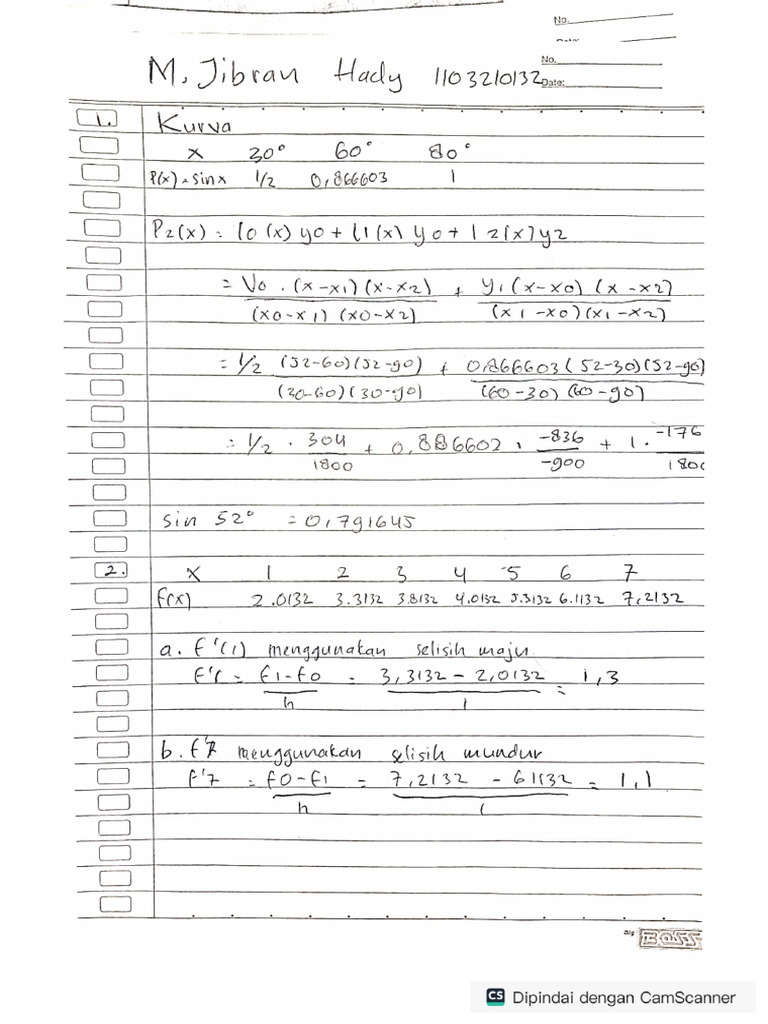 No.
No.
M. Jibran Hady 1103210132 Date:
1. Kurva
x 30° 60° 80°
P(x) = sin x 1/2 0,866603 1
P2(x) = l0(x) y0 + l1(x) y0 + l2(x) y2
= y0 . (x-x1)(x-x2) / (x0-x1)(x0-x2) + y1(x-x0)(x-x2) / (x1-x0)(x1-x2)
= 1/2 (52-60)(52-90) / (30-60)(30-90) + 0,866603(52-30)(52-90) / (60-30)(60-90)
= 1/2 . 304 / 1800 + 0,886602 . -836 / -900 + 1 . -176 / 180
sin 52° = 0,791645
2. x 1 2 3 4 5 6 7
f(x) 2.0132 3.3132 3.8132 4.0132 5.3132 6.1132 7,2132
a. f'(1) menggunakan selisih maju
f'1 = f1-f0 / h = 3,3132 - 2,0132 / 1 = 1,3
b. f'7 menggunakan selisih mundur
f'7 = f0-f1 / h = 7,2132 - 6,1132 / 1 = 1,1
BOSS
CS Dipindai dengan CamScanner